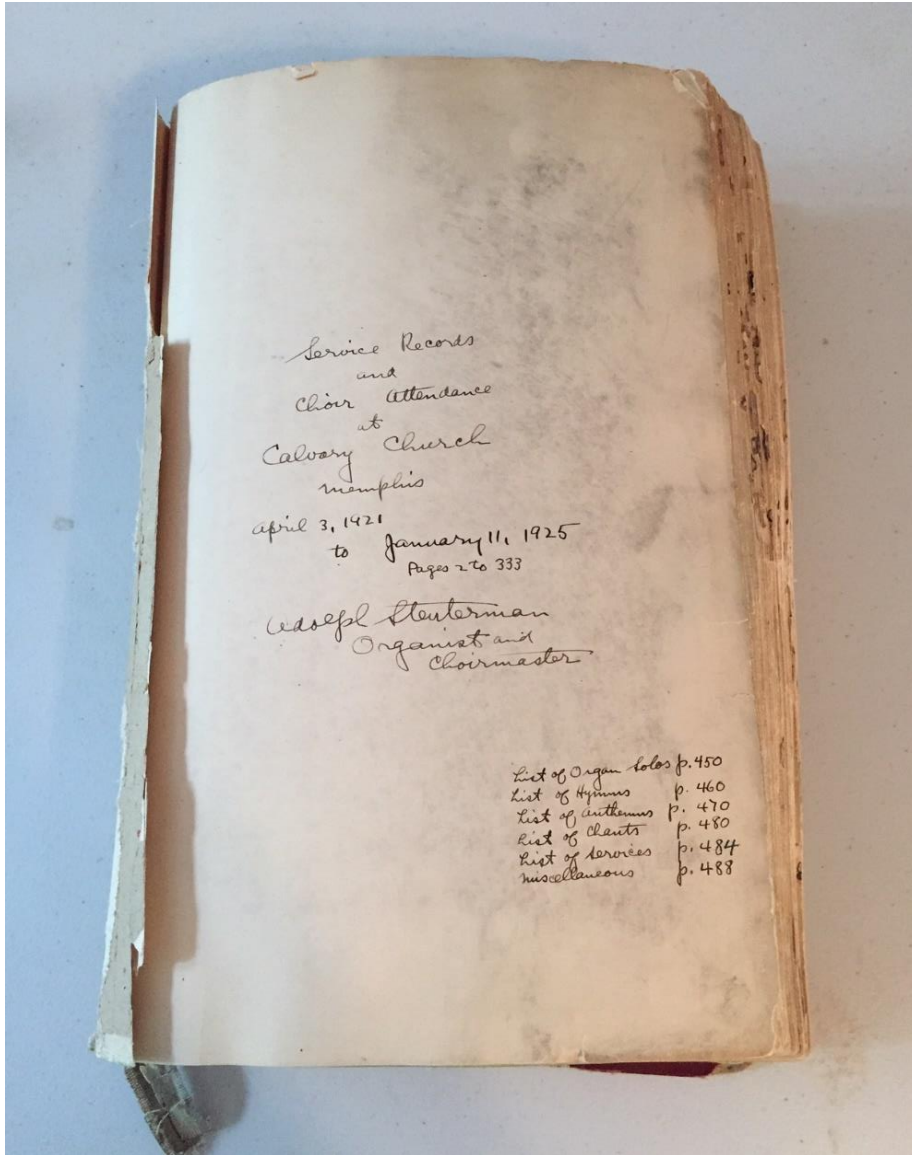 Service Records
and
Choir Attendance
at
Calvary Church
Memphis
April 3, 1921
to January 11, 1925
Pages 2 to 333
Adolph Steuterman
Organist and
Choirmaster
List of Organ Solos p. 450
List of Hymns p. 460
List of Anthems p. 470
List of Chants p. 480
List of Services p. 484
Miscellaneous p. 488